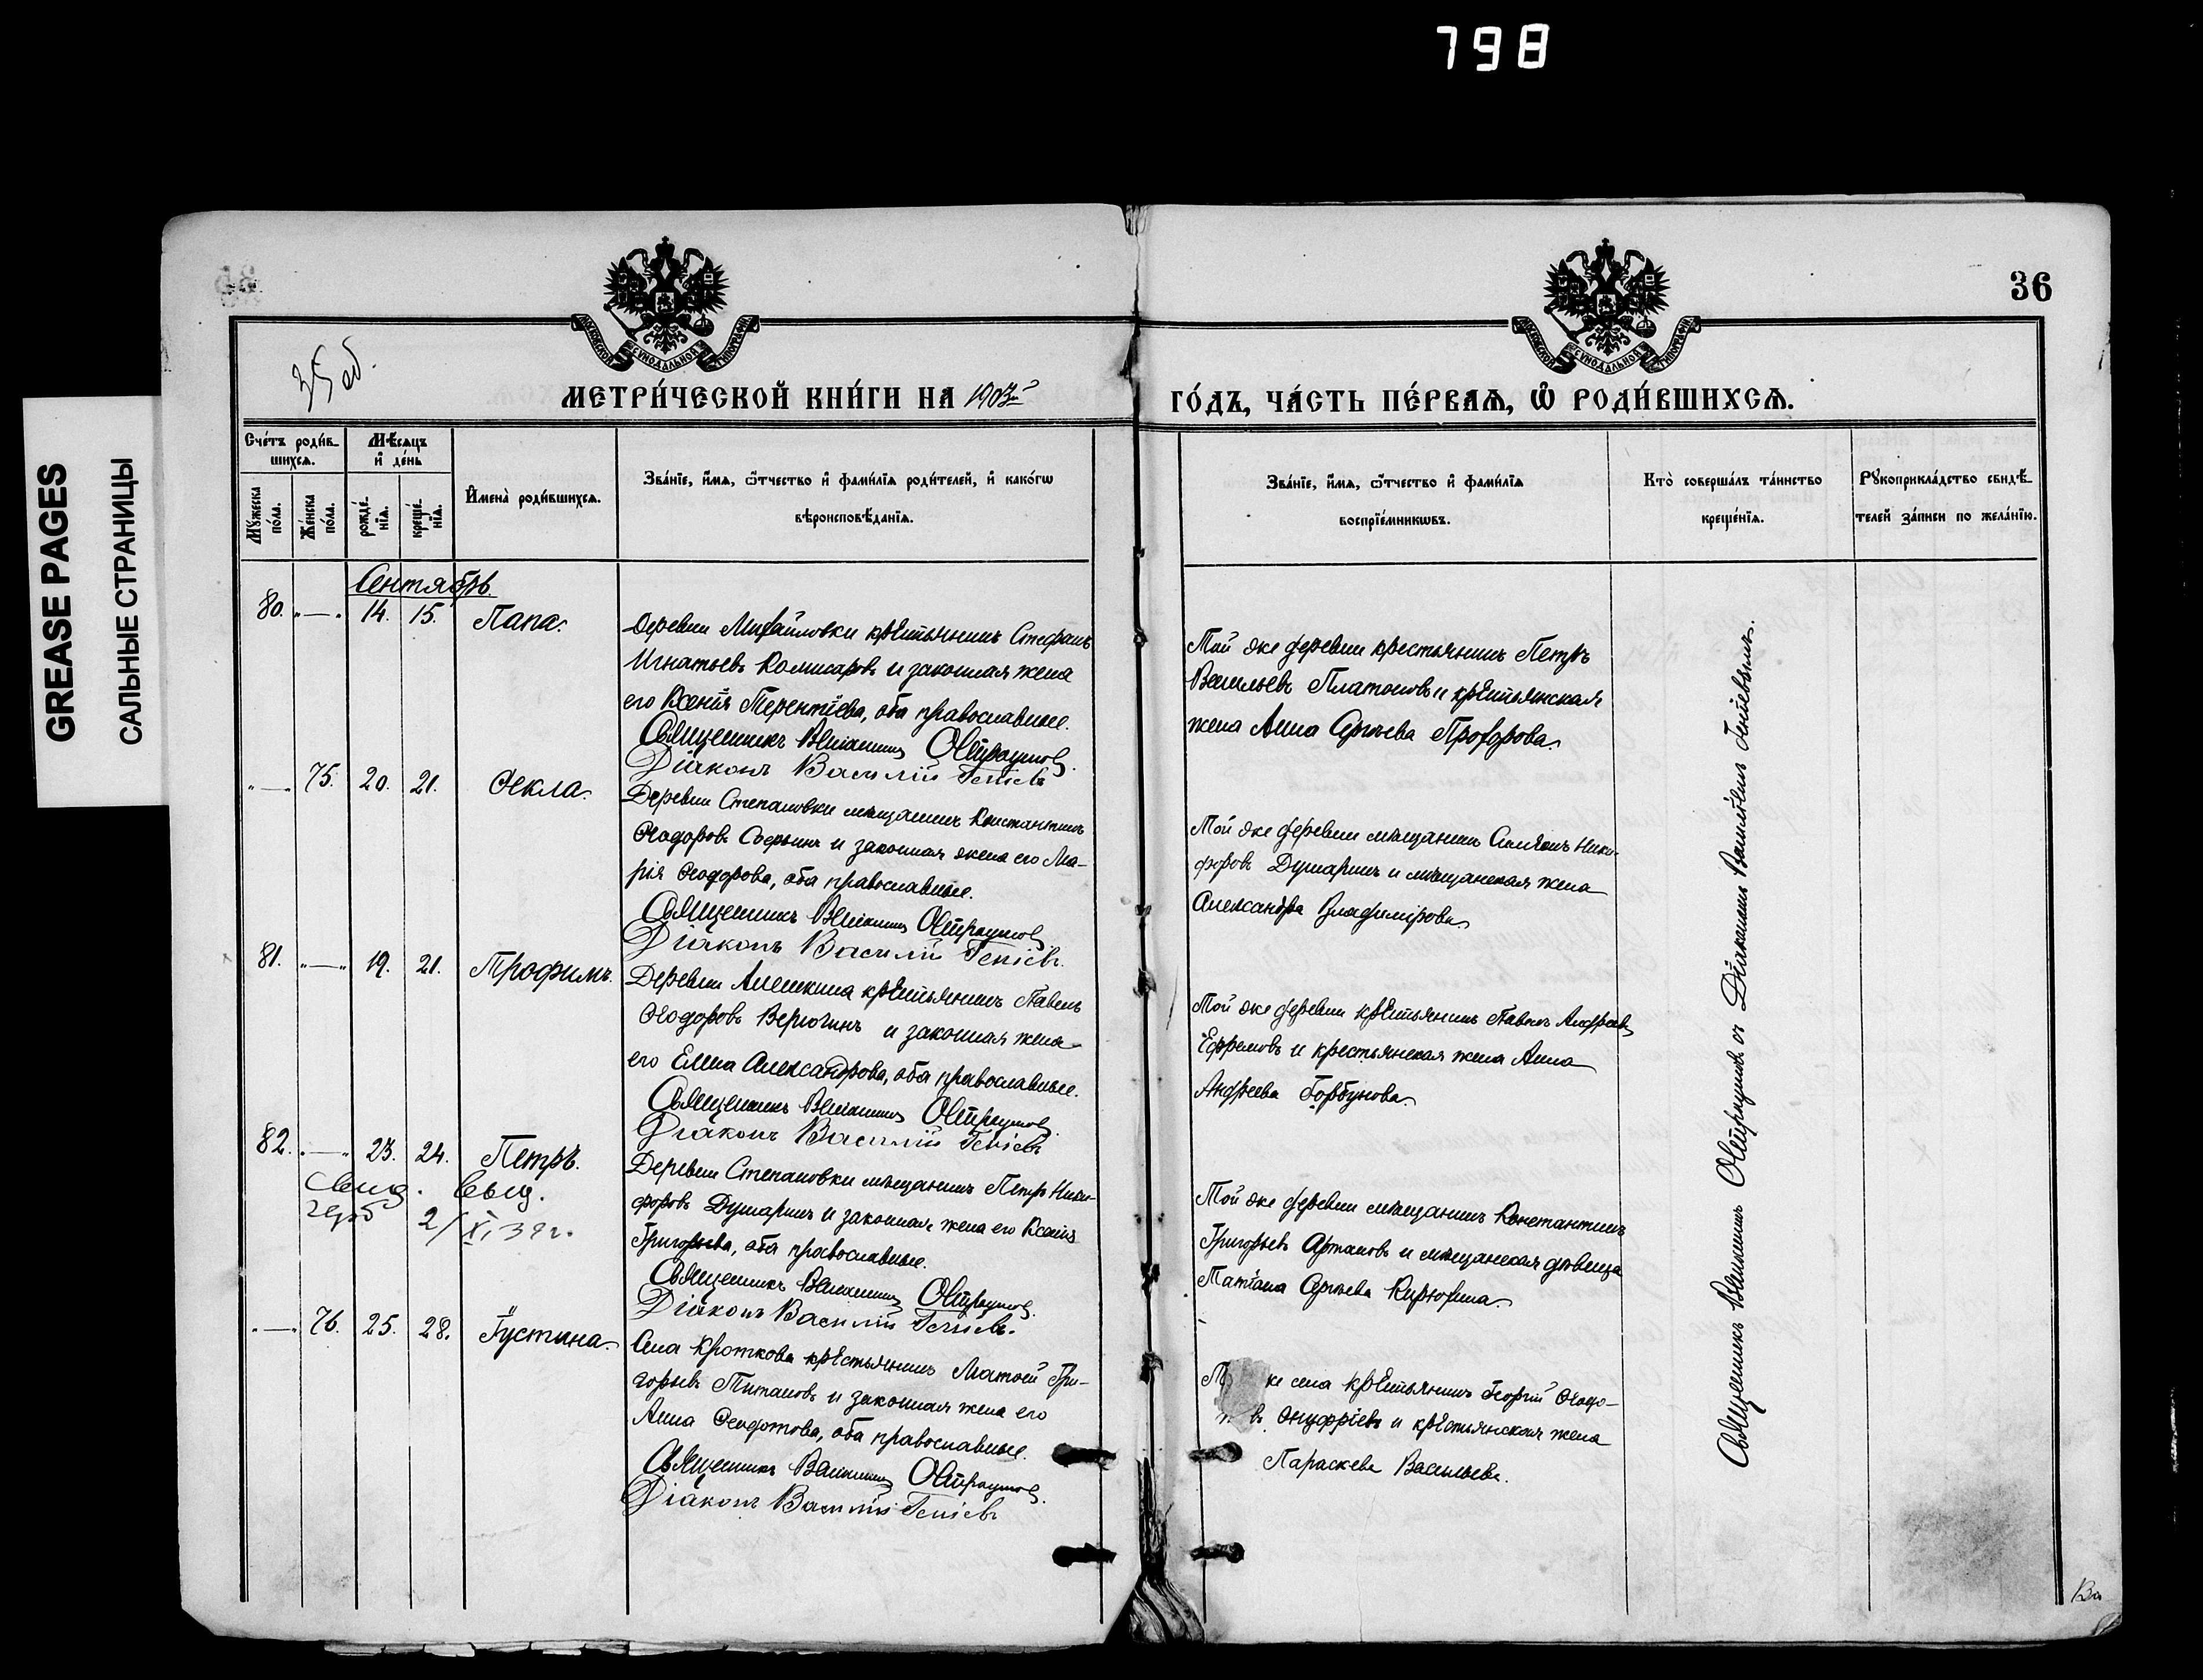 798
GREASE PAGES
САЛЬНЫЕ СТРАНИЦЫ
36
35 об.
МОСКОВСКОЙ СѴНОДАЛЬНОЙ ТИПОГРАФІИ
МОСКОВСКОЙ СѴНОДАЛЬНОЙ ТИПОГРАФІИ
МЕТРИ́ЧЕСКОЙ КНИ́ГИ НА 1903й
ГО́ДЪ, ЧА́СТЬ ПЕ́РВАѦ, Ѽ РОДИ́ВШИХСѦ.
Сче́тъ роди́в-
шихсѧ.
Мѣ́сѧцъ
и҆ де́нь
Мꙋ́жеска
по́ла.
Же́нска
по́ла.
рожде́-
нїѧ.
креще́-
нїѧ.
И҆мена̀ роди́вшихсѧ.
Зва́нїе, и҆́мѧ, ѻ҆́тчество и҆ фами́лїѧ роди́телей, и҆ како́гѡ
вѣроисповѣ́данїѧ.
Зва́нїе, и҆́мѧ, ѻ҆́тчество и҆ фами́лїѧ
воспрїе́мникѡвъ.
Кто̀ соверша́лъ та́инство
креще́нїѧ.
Рꙋкоприкла́дство свидѣ́-
телей за́писи по жела́нїю.
Сентябрь.
80. „—„ 14. 15. Папа.
Деревни Михайловки крестьянинъ Стефанъ
Игнатьевъ Комисаровъ и законная жена
его Ксенія Терентіева, оба православные.
Священникъ Веніаминъ Остроумов.
Діаконъ Василій Геніевъ
Той же деревни крестьянинъ Петръ
Васильевъ Платоновъ и крестьянская
жена Анна Сргѣева Прохорова.
„—„ 75. 20. 21. Ѳекла.
Деревни Степановки мѣщанинъ Константинъ
Ѳеодоровъ и законная жена его Ма-
рія Ѳеодорова, оба православные.
Священникъ Веніаминъ Остроумов
Діаконъ Василій Геніевъ.
Той же деревни мѣщанинъ Симеонъ Ники-
форовъ Душаринъ и мѣщанская жена
Александра Владимірова
81. „—„ 19. 21. Трофимъ.
Деревни Алешкина крестьянинъ Павелъ
Ѳеодоровъ Верючинъ и законная жена
его Елена Александрова, оба православные.
Священникъ Веніаминъ Остроумов.
Діаконъ Василій Геніевъ
Той же деревни крестьянинъ Павелъ Андреевъ
Ефремовъ и крестьянская жена Анна
Андреева Горбунова.
82. „—„ 23. 24. Петръ.
Свид. выд.
герб 2/XI 39 г.
Деревни Степановки мѣщанинъ Петръ Ники-
форовъ Душаринъ и законная жена его Ксенія
Григорьева, оба православные.
Священникъ Веніаминъ Остроумов.
Діаконъ Василій Геніевъ.
Той же деревни мѣщанинъ Константинъ
Григорьевъ Артамовъ и мѣщанская дѣвица
Татіана Сргѣева Кирюхина.
„—„ 76. 25. 28. Іустина.
Села Кроткова крестьянинъ Матѳей Гри-
горьевъ Титановъ и законная жена его
Анна Ѳеодотова, оба православные.
Священникъ Веніаминъ Остроумов.
Діаконъ Василій Геніевъ
села крестьянинъ Георгій Ѳеодо-
въ Онуфріевъ и крестьянская жена
Параскева Васильева.
Священникъ Веніаминъ Остроумовъ съ Діакономъ Василіемъ Геніевымъ.